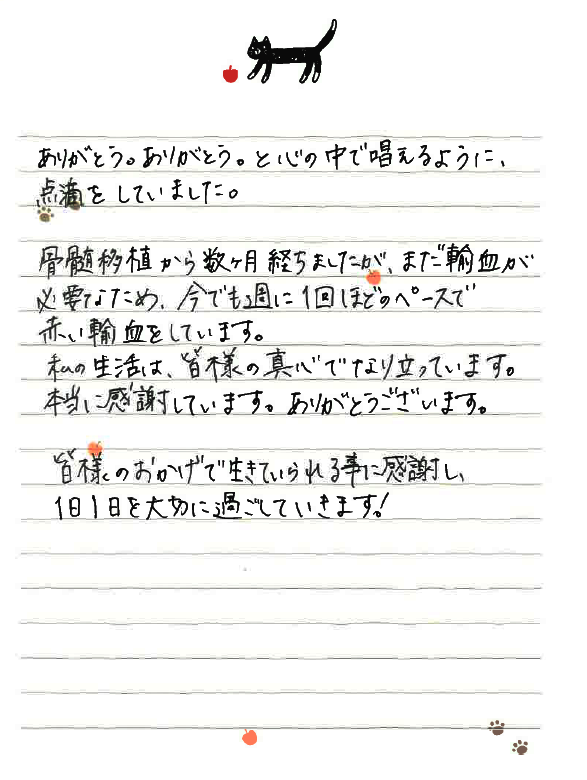 ありがとう。ありがとう。と心の中で唱えるように、
点滴をしていました。
骨髄移植から数ヶ月経ちましたが、まだ輸血が
必要なため、今でも週に1回ほどのペースで
赤い輸血をしています。
私の生活は、皆様の真心でなり立っています。
本当に感謝しています。ありがとうございます。
皆様のおかげで生きていられる事に感謝し、
1日1日を大切に過ごしていきます!